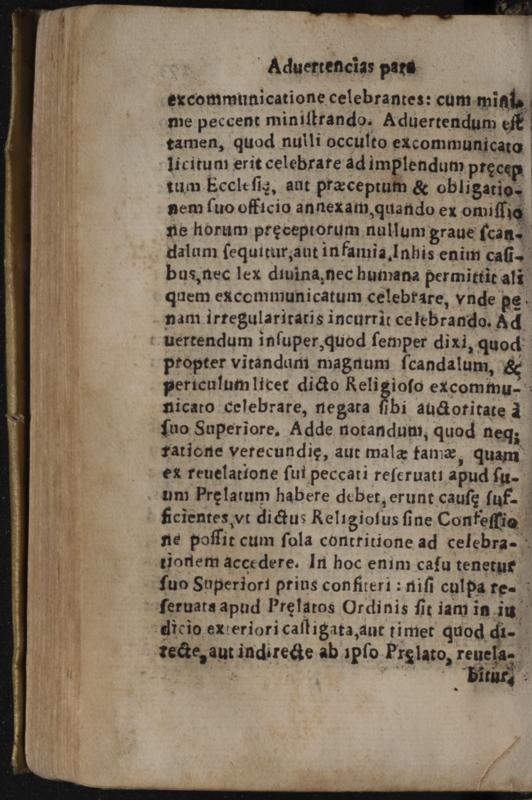 Aduertencias para
excommunicatione celebrantes: cum mini-
me peccent ministrando. Aduertendum est
tamen, quod nulli occulto excommunicato
licitum erit celebrare ad implendum pręcep
tum Ecclesię, aut præceptum & obligatio-
nem suo officio annexam, quando ex omissio
ne horum pręceptorum nullum graue scan-
dalum sequitur, aut infamia. In his enim casi-
bus, nec lex diuina, nec humana permittit ali
quem excommunicatum celebrare, vnde pę-
nam irregularitatis incurrit celebrando. Ad
uertendum insuper, quod semper dixi, quod
propter vitandum magnum scandalum, &
periculum licet dicto Religioso excommu-
nicato celebrare, negata sibi auctoritate à
suo Superiore. Adde notandum, quod neq;
ratione verecundię, aut malæ famæ, quam
ex reuelatione sui peccati reseruati apud su-
um Pręlatum habere debet, erunt causę suf-
ficientes, vt dictus Religiosus sine Confessio
ne possit cum sola contritione ad celebra-
tionem accedere. In hoc enim casu tenetur
suo Superiori prius confiteri : nisi culpa re-
seruata apud Pręlatos Ordinis sit iam in iu
dicio exteriori castigata, aut timet quod di-
recte, aut indirecte ab ipso Pręlato, reuela-
bitur,